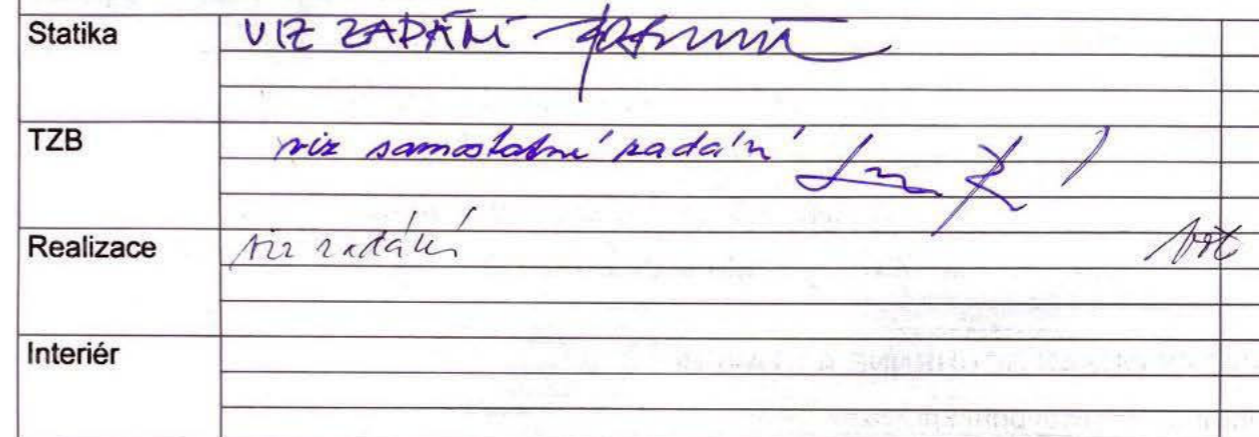 Statika VIZ ZADÁNÍ
TZB viz samostatné zadání
Realizace viz zadání
Interiér